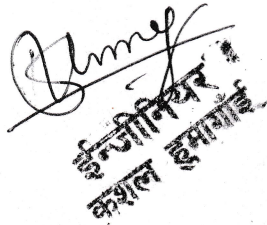 ईन्जीनियर
कुशल हुमागाँई